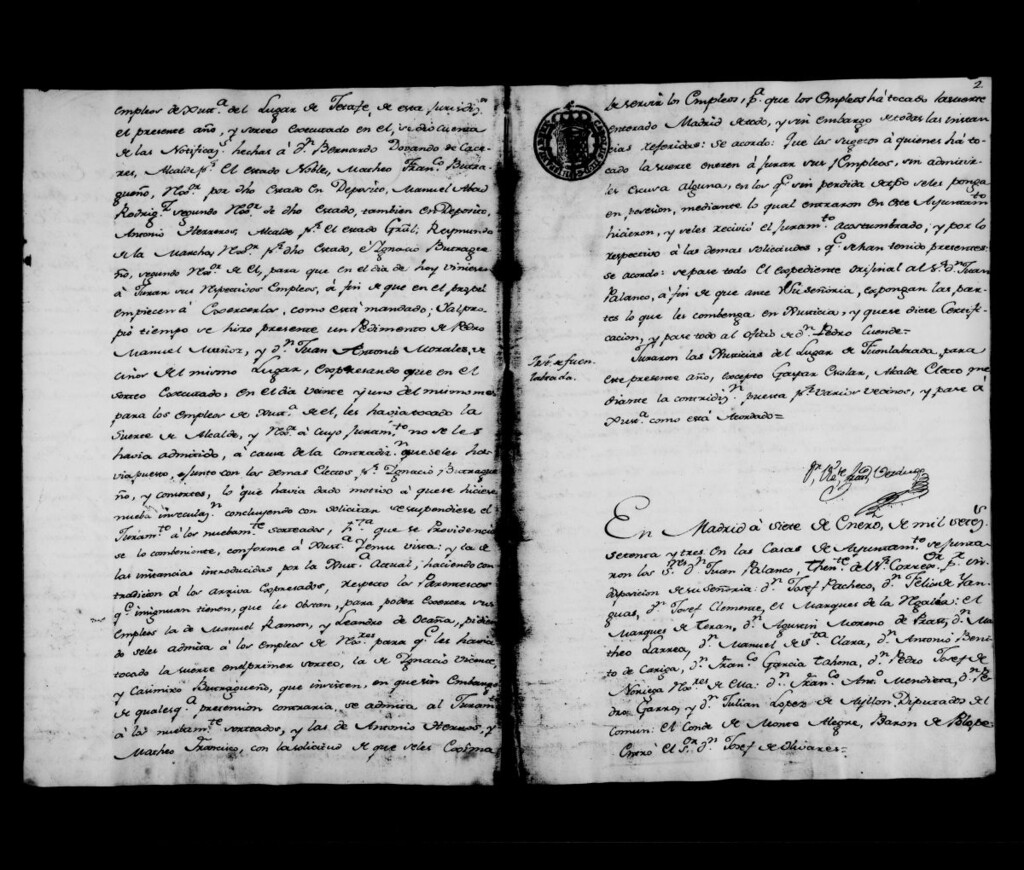 empleos de Just.ª del Lugar de Jetafe, de esta Jurisdiz.ⁿ
el presente año, y sorteo executado en el, se dio cuenta
de las Notificaz.ˢ hechas à d.ⁿ Bernardo Donando de Cace-
res, Alcalde p.ʳ el estado Noble, Matheo Fran.ᶜᵒ Butra-
gueño, Rex.ᵒʳ por dho Estado en Deposito, Manuel Abad
Rodrig.ᶻ segundo Rex.ᵒʳ de dho estado, tambien en Deposito,
Antonio Herreros, Alcalde p.ʳ el estado Gràl; Reymundo
de la Marcha, Rex.ᵒʳ p.ʳ dho Estado, è Ygnacio Butrague-
ño, segundo Rex.ᵒʳ de el, para que en el dia de hoy viniesen
à Jurar sus respectivos Empleos, à fin de que en el propio
empiecen à Exercerlos, como està mandado; Y al pro-
pio tiempo se hizo presente un Pedimento de Pedro
Manuel Muñoz, y d.ⁿ Juan Antonio Morales, ve-
cinos del mismo Lugar, expresando que en el
sorteo executado, en el dia veinte y uno del mismo mes
para los empleos de Just.ª de el, les havia tocado la
suerte de Alcalde, y Rex.ᵒʳ à cuyo juram.ᵗᵒ no se les
havia admitido, à causa de la contradiz.ⁿ que seles ha-
via puesto, y junto con las demas Electos, p.ʳ Ygnacio Butrague-
ño, y consortes, lo que havia dado motivo à que se hiciese
nueba inseculaz.ⁿ concluyendo con solicitar se suspendiese el
Juram.ᵗᵒ à los nuebam.ᵗᵉ sorteados, h.ᵗᵃ que se Providencie
se lo combeniente, conforme à Just.ª y en su vista: y la de
las instancias introducidas por la Just.ª Actual, haciendo con-
tradicion à los arriva Expresados, respecto los Parentescos
q.ᵉ insignuan tienen, que les obstan, para poder Exercer sus
empleos la de Manuel Ramon, y Leandro de Ocaña, pidien-
do seles admita à los empleos de Rex.ʳᵉˢ para q.ᵉ les havia
tocado la suerte en el primer sorteo, la de Ygnacio Vicente,
y Casimiro Butragueño, que insisten, en que sin Embargo
de qualesq.ª pretension contraria, se admita al Juram.ᵗᵒ
à la nuebam.ᵗᵉ sorteados, y las de Antonio Herreros, y
Matheo Francisco, con la solicitud de que seles Exsima
2
de servir los Empleos, p.ª que los Empleos hà tocado la suerte
enterado Madrid de todo, y sin embargo de todas las instan-
cias referidas: Se acordo: Que los sugetos à quienes hà to-
cado la suerte entren à Jurar sus Empleos, sin admitir-
les escusa alguna, en los q.ᵉ sin perdida de tpô seles ponga
en posesion, mediante lo qual entraron en este Ayuntam.ᵗᵒ
hicieron, y seles recivió el Juram.ᵗᵒ acostumbrado, y por lo
respectivo à las demas solicitudes, q.ᵉ se han tenido presentes
se acordo: se pase todo el expediente orixinal al S.ʳ d.ⁿ Juan
Palanco, à fin de que ante Su Señoria, expongan las par-
tes lo que les combenga en Justicia, y que se diese Certifi-
cacion, y pase todo al ofizio de d.ⁿ Pedro Cuende=
Jur. fuen
labrada.
Juraron las Justicias del Lugar de Fuenlabrada, para
este presente año, excepto Gaspar Escolar, Alcalde Electo me
diante la contradiz.ⁿ puesta p.ʳ varios vecinos, y pase à
Just.ª como està Acordado=
En Madrid à siete de Enero, de mil setez.ˢ
setenta y tres en las Casas de Ayuntam.ᵗᵒ se junta-
ron los S.ʳᵉˢ d.ⁿ Juan Palanco, then.ᵗᵉ de S.ʳ Correx.ᵒʳ p.ʳ in-
disposicion de su señoria: d.ⁿ Josef Pacheco, d.ⁿ Felix de Yan-
guas, d.ⁿ Josef Clemente, el Marques de la Regalia: el
Marques de Teran, d.ⁿ Agustin Moreno de Prats, d.ⁿ Ma-
theo Larrea, d.ⁿ Manuel de S.ᵗᵃ Clara, d.ⁿ Antonio Beni-
to de Cariga, d.ⁿ Fran.ᶜᵒ Garcia Tahona, d.ⁿ Pedro Josef de
Noriega Rex.ʳᵉˢ de esta d.ⁿ Fran.ᶜᵒ Ant.ᵒ Mendieta, d.ⁿ Pe-
dro Garro, y d.ⁿ Julian Lopez de Ayllon, Diputados del
Comun: el Conde de Monte Alegre, Baron de Polope
Entró el S.ᵒʳ d.ⁿ Josef de Olivares=